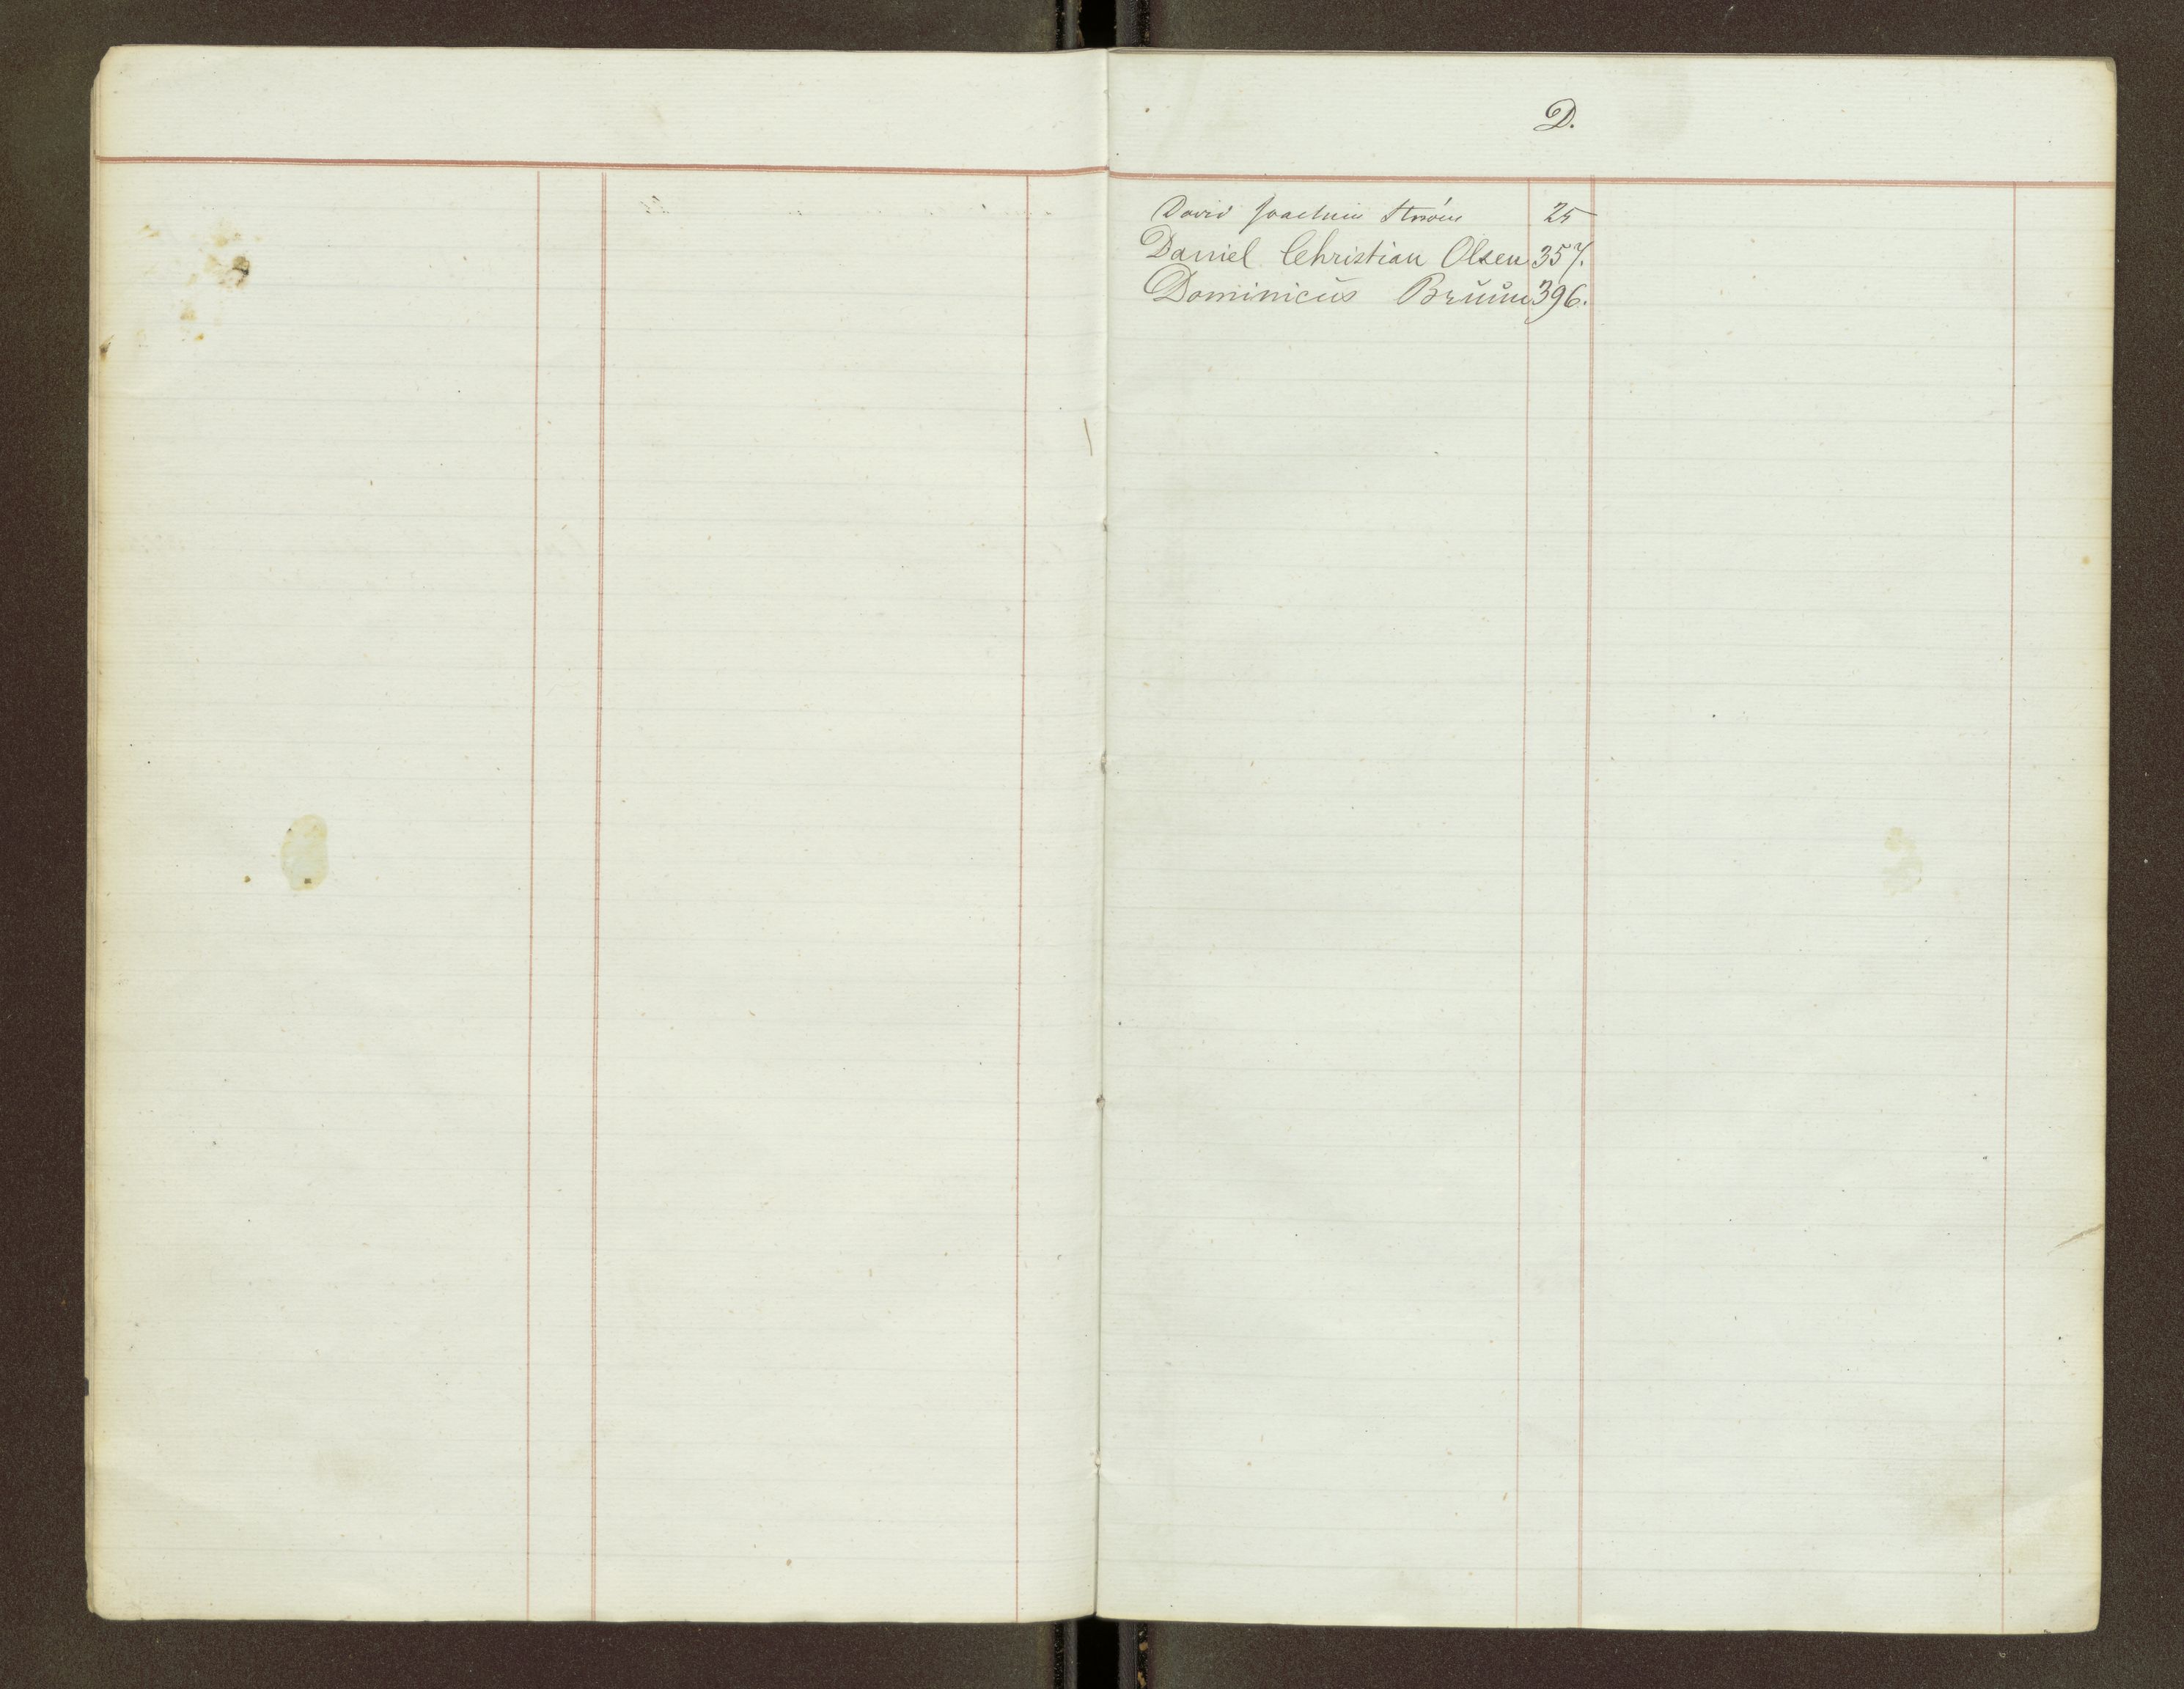 D.
David Joachim Strøm 25
Daniel Christian Olsen 357.
Dominicus Bruun 396.